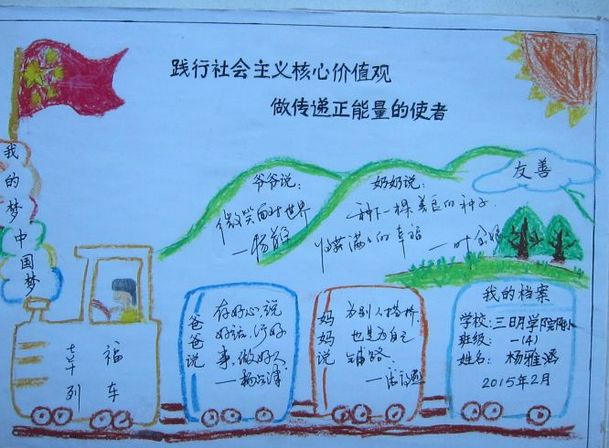 践行社会主义核心价值观
做传递正能量的使者
我的梦中国梦
爷爷说:
微笑面对世界
奶奶说:
种下一棵善良的种子
收获满满的幸福
友善
幸福
列车
爸爸说
存好心,说
好话,行好
事,做好人
妈妈说
为别人搭桥,
也是为自己
铺路.
我的档案
学校:三明学院附小
班级: 一(4)
姓名: 杨雅涵
2015年2月